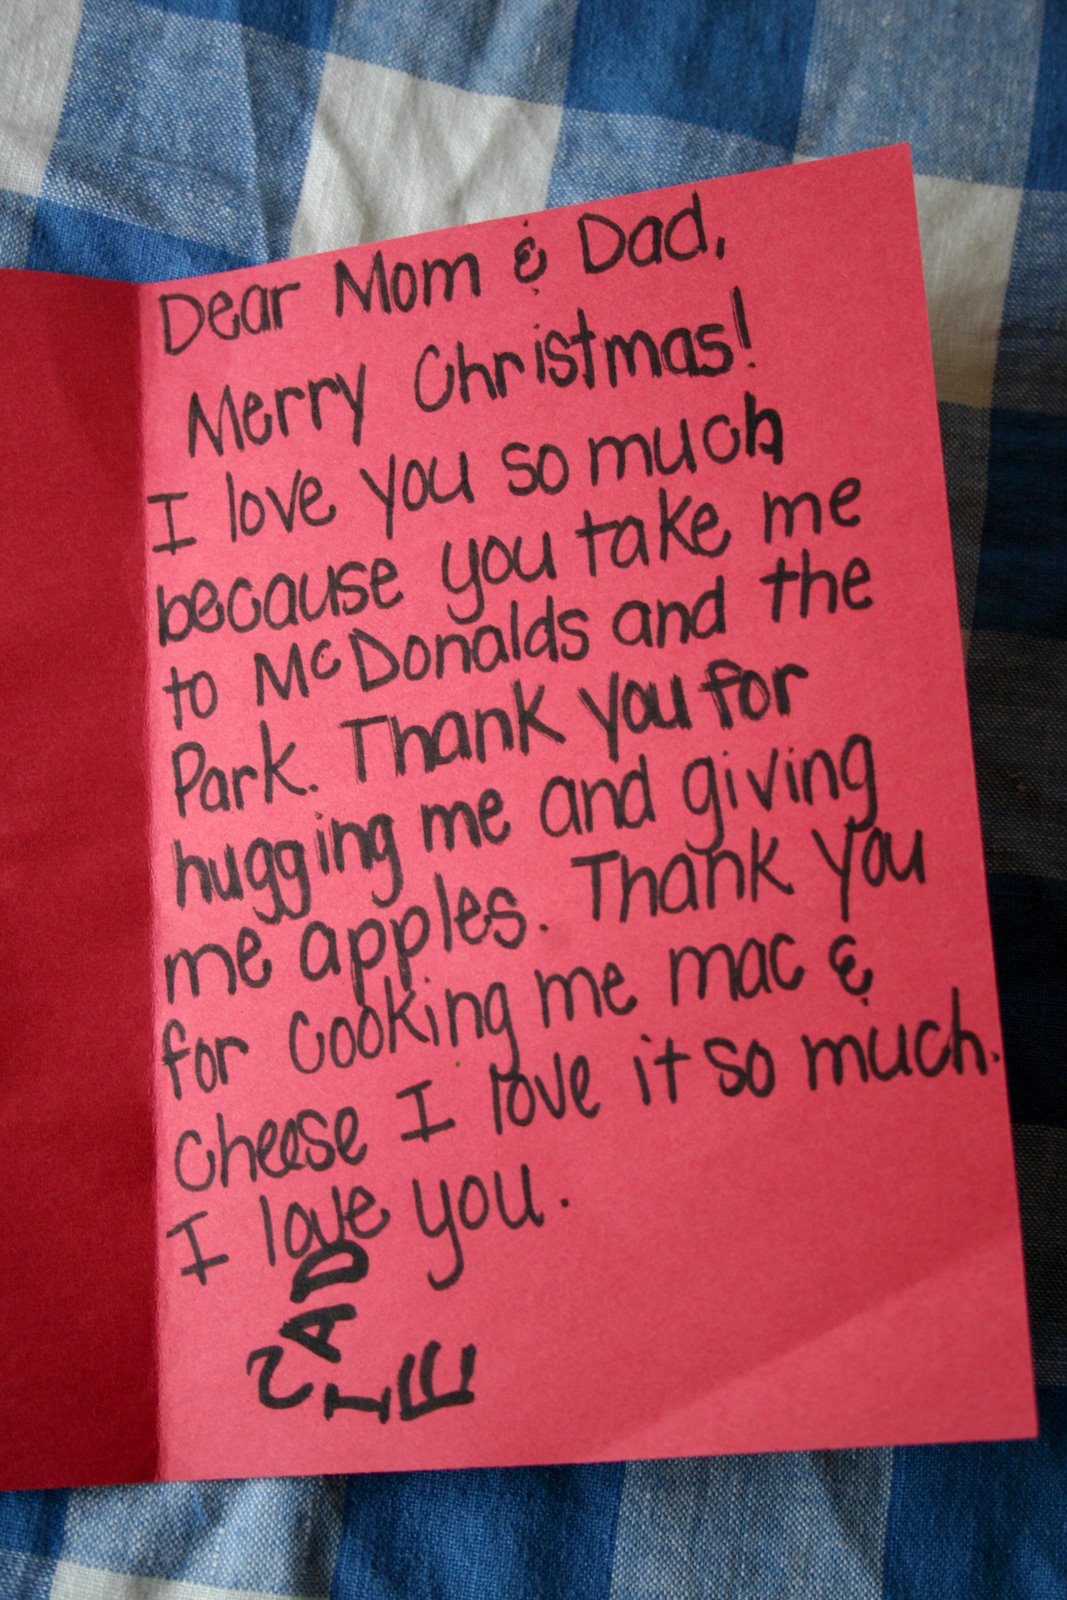 Dear Mom & Dad,
Merry Christmas!
I love you so much
because you take me
to McDonalds and the
Park. Thank you for
hugging me and giving
me apples. Thank you
for cooking me mac &
cheese I love it so much.
I love you.
SAD
IE